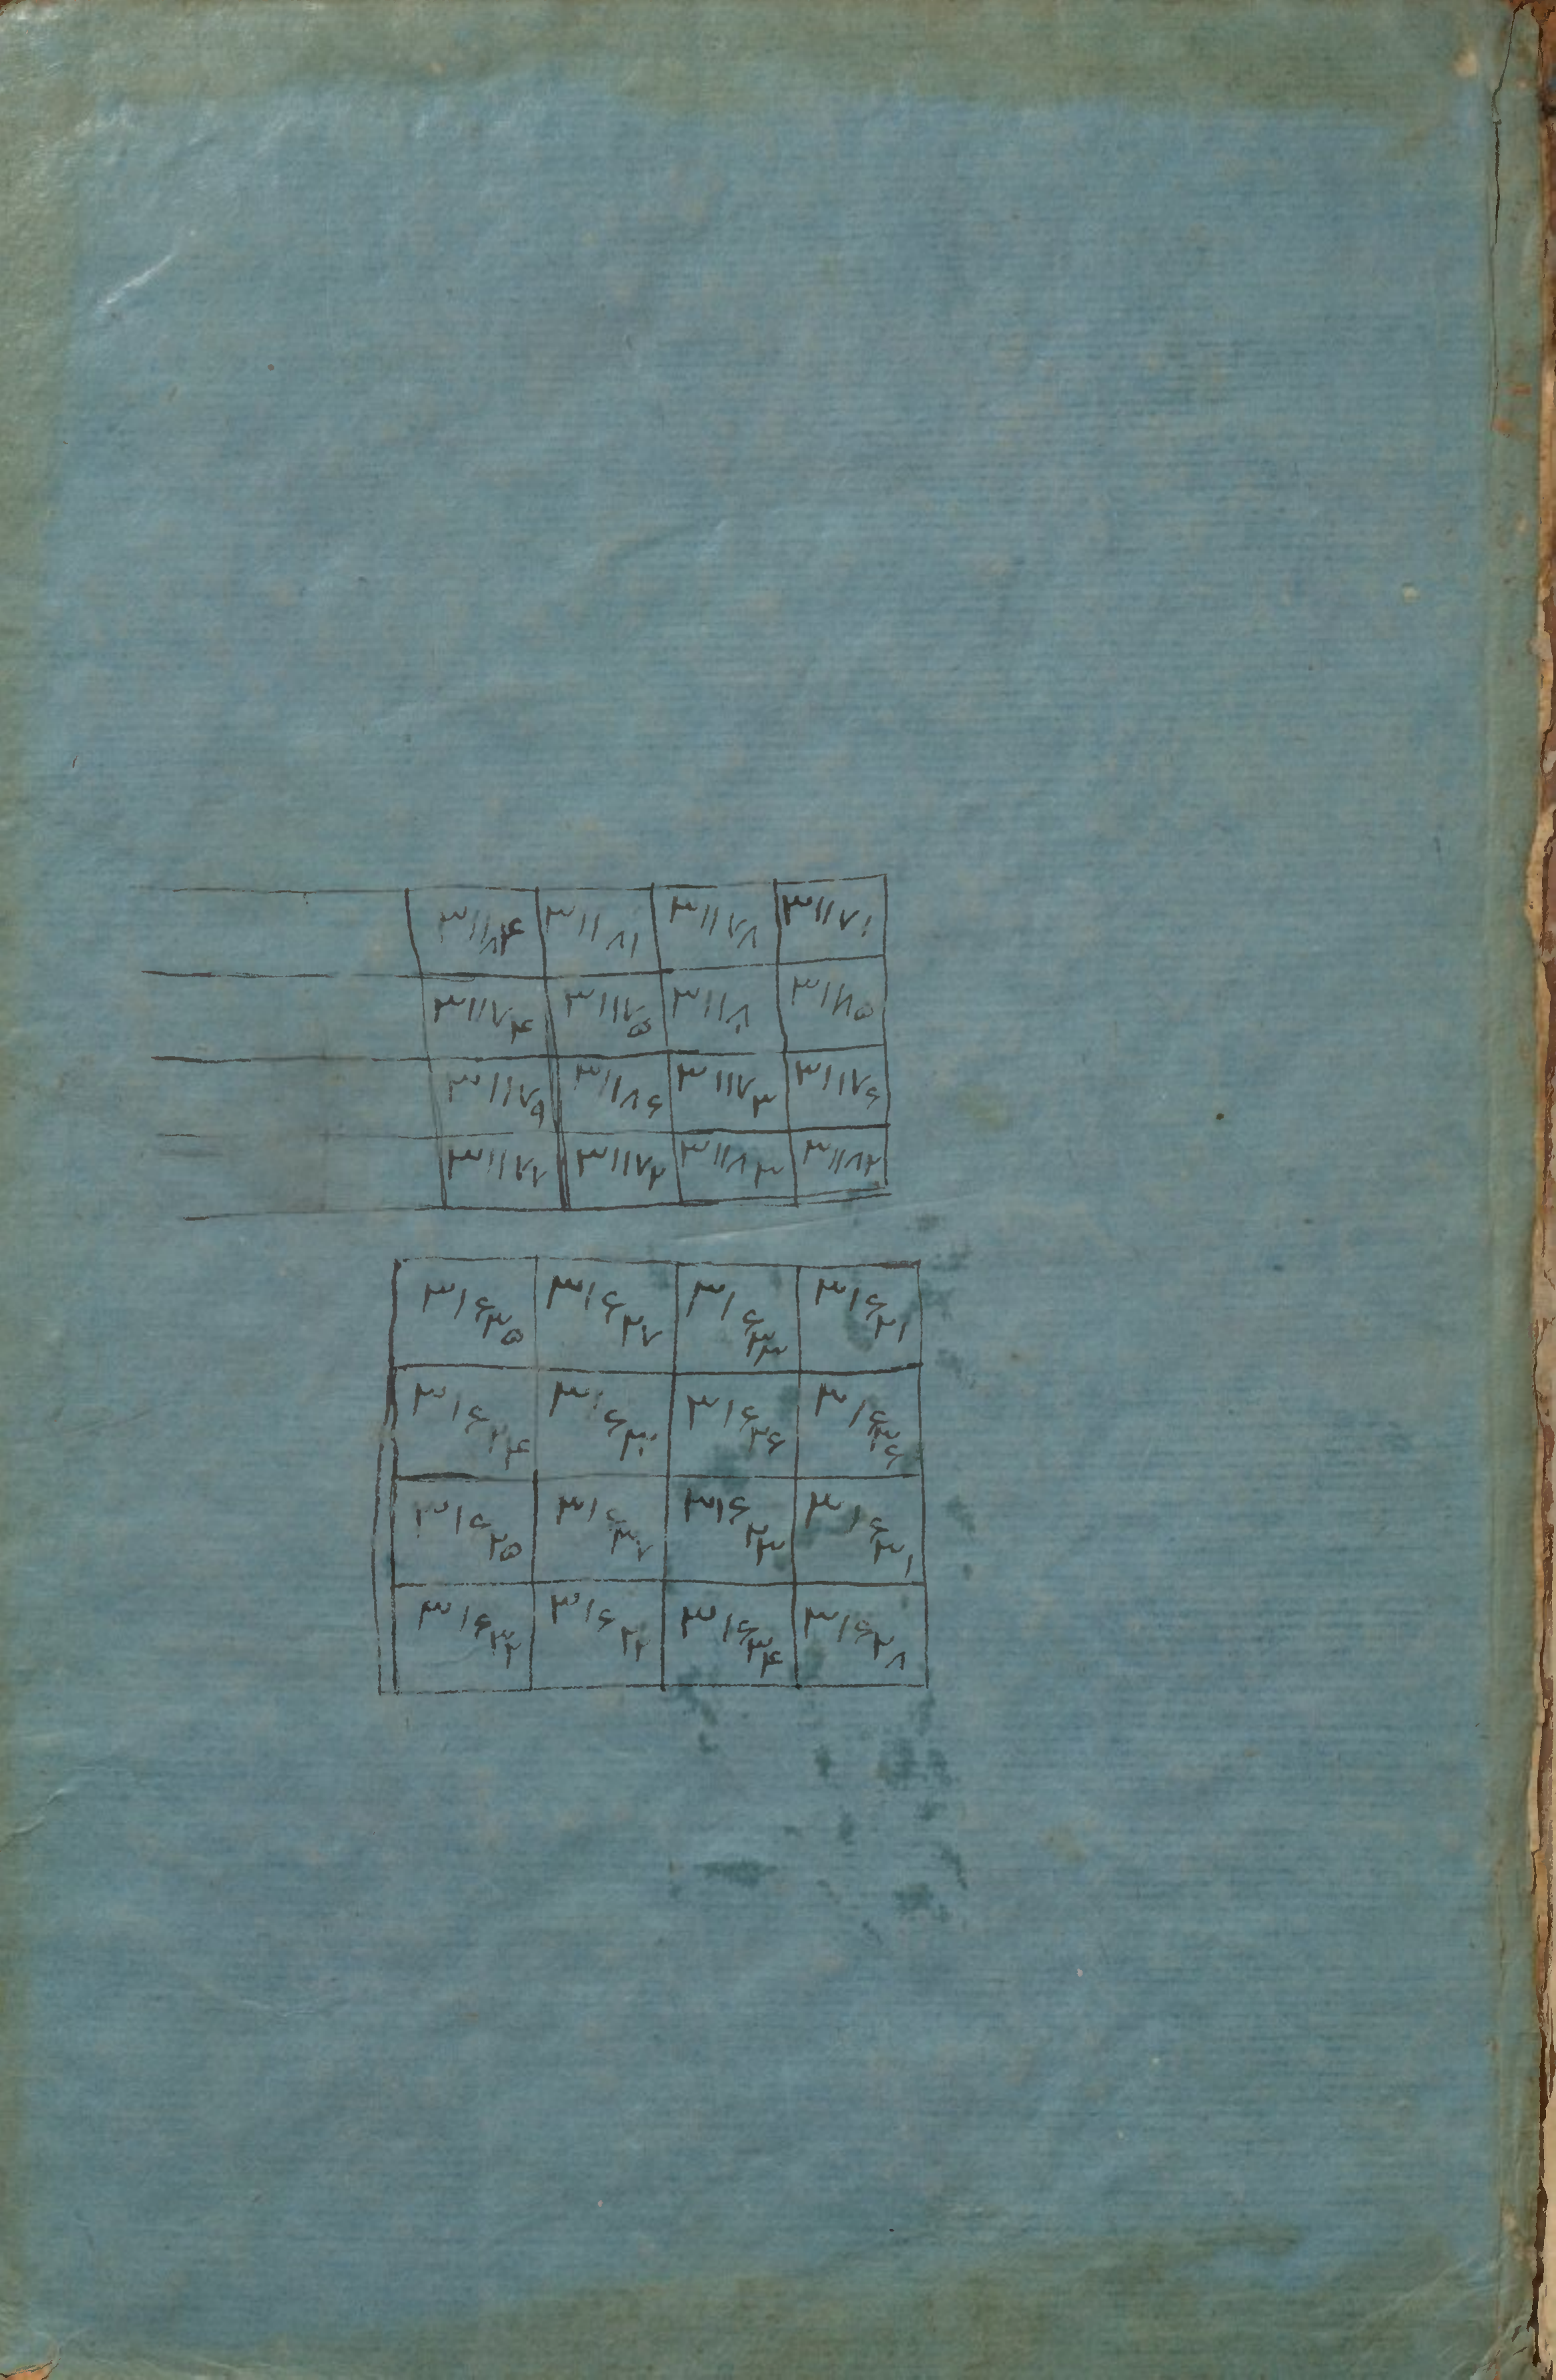 ۳۱۱۷۴ ۳۱۱۸۱ ۳۱۱۸۸ ۳۱۱۷۱
۳۱۱۸۴ ۳۱۱۷۵ ۳۱۱۷۰ ۳۱۱۸۵
۳۱۱۷۹ ۳۱۱۸۶ ۳۱۱۷۳ ۳۱۱۷۶
۳۱۱۷۷ ۳۱۱۷۲ ۳۱۱۸۳ ۳۱۱۸۲
۳۱۶۳۵ ۳۱۶۲۷ ۳۱۶۳۳ ۳۱۶۲۱
۳۱۶۲۴ ۳۱۶۳۰ ۳۱۶۲۶ ۳۱۶۳۶
۳۱۶۲۵ ۳۱۶۳۷ ۳۱۶۲۳ ۳۱۶۳۱
۳۱۶۳۲ ۳۱۶۲۲ ۳۱۶۳۴ ۳۱۶۲۸